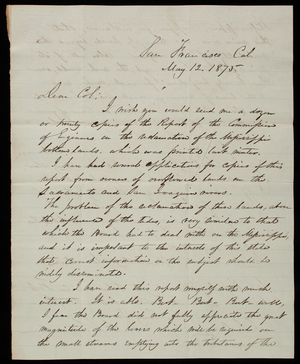 San Francisco Cal
May 12. 1875.
Dear Col:
I wish you would send me a dozen
or twenty copies of the Report of the Commission
of Engineers on the reclamation of the Mississippi
bottom lands, which was printed last winter.
I have had several applications for copies of this
report from owners of overflowed lands on the
Sacramento and San Joaquin rivers.
The problem of the reclamation of these lands, above
the influence of the tides, is very similar to that
which the Board had to deal with on the Mississippi,
and it is important to the interests of this State
that correct information on the subject should be
widely disseminated.
I have read this report myself with much
interest. It is able. But - But - But well,
I fear the Board did not fully appreciate the great
magnitude of the levees which will be required on
the small streams emptying into the tributaries of the